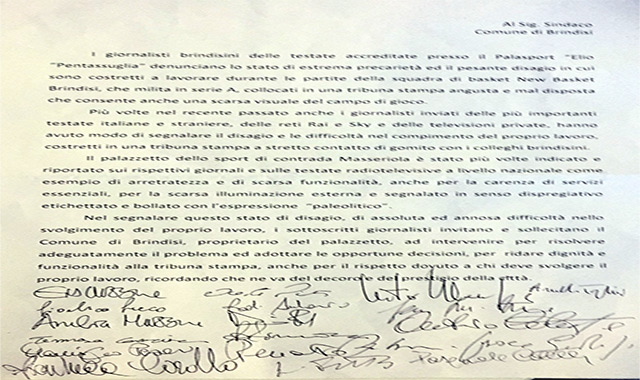 Al Sig. Sindaco
Comune di Brindisi
I giornalisti brindisini delle testate accreditate presso il Palasport "Elio
"Pentassuglia" denunciano lo stato di estrema precarietà ed il pesante disagio in cui
sono costretti a lavorare durante le partite della squadra di basket New Basket
Brindisi, che milita in serie A, collocati in una tribuna stampa angusta e mal disposta
che consente anche una scarsa visuale del campo di gioco.
Più volte nel recente passato anche i giornalisti inviati delle più importanti
testate italiane e straniere, delle reti Rai e Sky e delle televisioni private, hanno
avuto modo di segnalare il disagio e le difficoltà nel compimento del proprio lavoro,
costretti in una tribuna stampa a stretto contatto di gomito con i colleghi brindisini.
Il palazzetto dello sport di contrada Masseriola è stato più volte indicato e
riportato sui rispettivi giornali e sulle testate radiotelevisive a livello nazionale come
esempio di arretratezza e di scarsa funzionalità, anche per la carenza di servizi
essenziali, per la scarsa illuminazione esterna e segnalato in senso dispregiativo
etichettato e bollato con l'espressione "paleolitico".
Nel segnalare questo stato di disagio, di assoluta ed annosa difficoltà nello
svolgimento del proprio lavoro, i sottoscritti giornalisti invitano e sollecitano il
Comune di Brindisi, proprietario del palazzetto, ad intervenire per risolvere
adeguatamente il problema ed adottare le opportune decisioni, per ridare dignità e
funzionalità alla tribuna stampa, anche per il rispetto dovuto a chi deve svolgere il
proprio lavoro, ricordando che ne va del decoro e del prestigio della città.